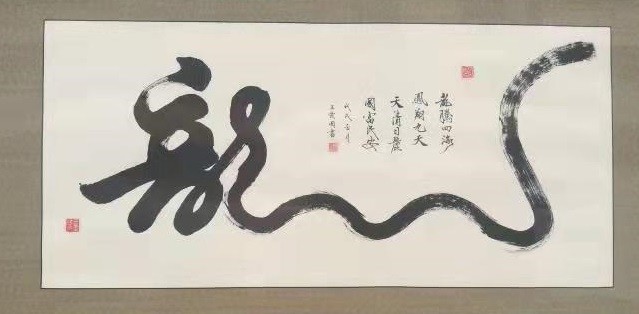 龍
龍騰四海
鳳翔九天
天清日麗
國富民安
戊戌 月